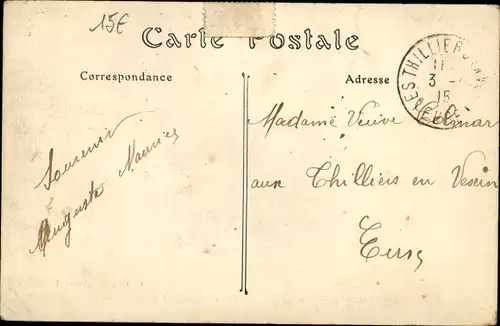 15€
Carte Postale
Correspondance
Adresse
11
3
15
Madame Veuve
aux Thilliers en Vexin
Eure
Souvenir
Auguste Maurice